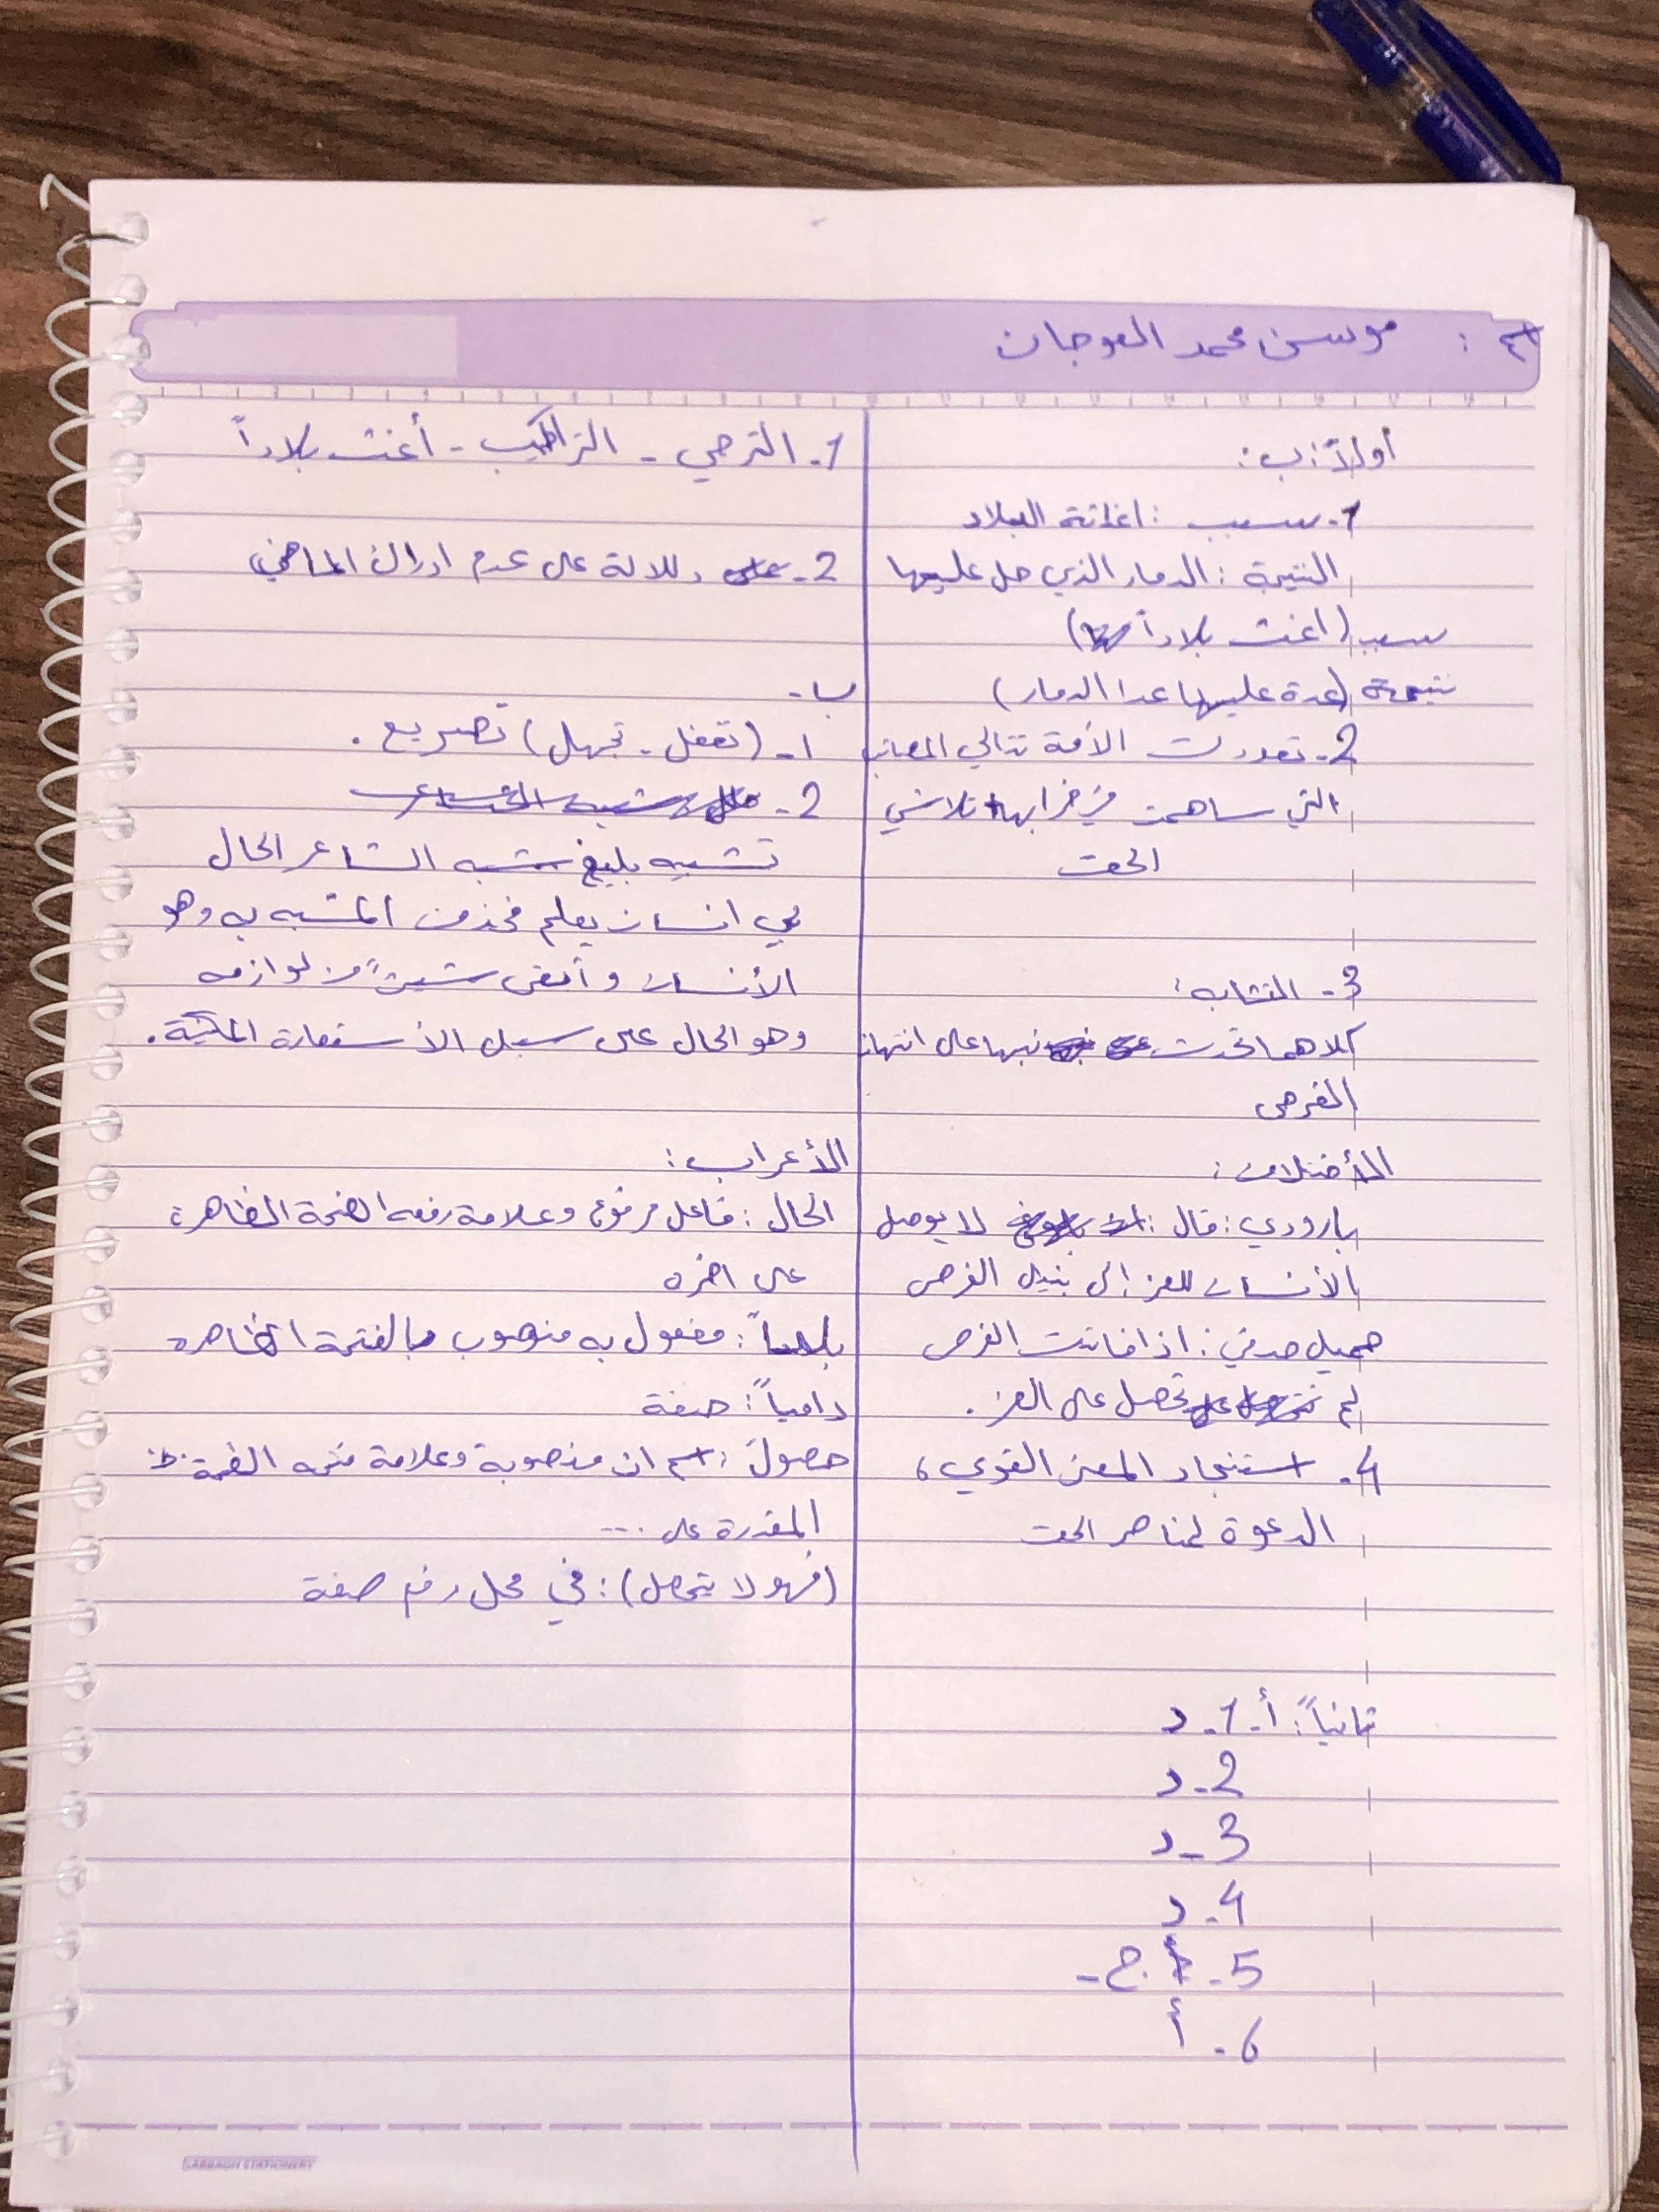 موسى محمد العوجان
أولاً: ب:
1- سبب: اغاثة البلاد
النتيجة: الدمار الذي حل عليها
سبب (اغث بلاداً)
نتيجة (عدة عليها عدا الدمار)
2- تعددت الأمة تتالي المصائب
التي ساهمت في خرابها تلاشي
الحق
3- التشابه:
كلاهما تحدث نبها على انتهاز
الفرص
الأختلاف:
بارودي: قال: لا يوصل
الأنسان للعز إلى بنيل الفرص
جميل صدقي: اذا فاتت الفرص
لم تحصل على العز.
4- استنجاد المعنى القوي،
الدعوة لمناصر الحق
ثانياً: أ- 1- د
2- د
3- د
4- د
5- ج-
6- أ
1- الترجي - التراكيب - أغث بلاداً
2- دلالة على عدم ادراك الماضي
ب-
1- (تعقل - تجهل) تصريع.
2-
تشبيه بليغ شبه الشاعر الحال
بي انسان يعلم فحذف المشبه به وهو
الأنسان وأبقى شيئً من لوازمه
وهو الحال على سبيل الأستعارة المكنية.
الأعراب:
الحال: فاعل مرفوع وعلامة رفعه الضمة الظاهرة
على اخره
مفعول به منصوب بالفتحة الظاهرة
دامياً: صفة
ان منصوبة وعلامة
المقدرة على ...
(فهو لا يتحصل): في محل رفع صفة
SABBAGH STATIONERY